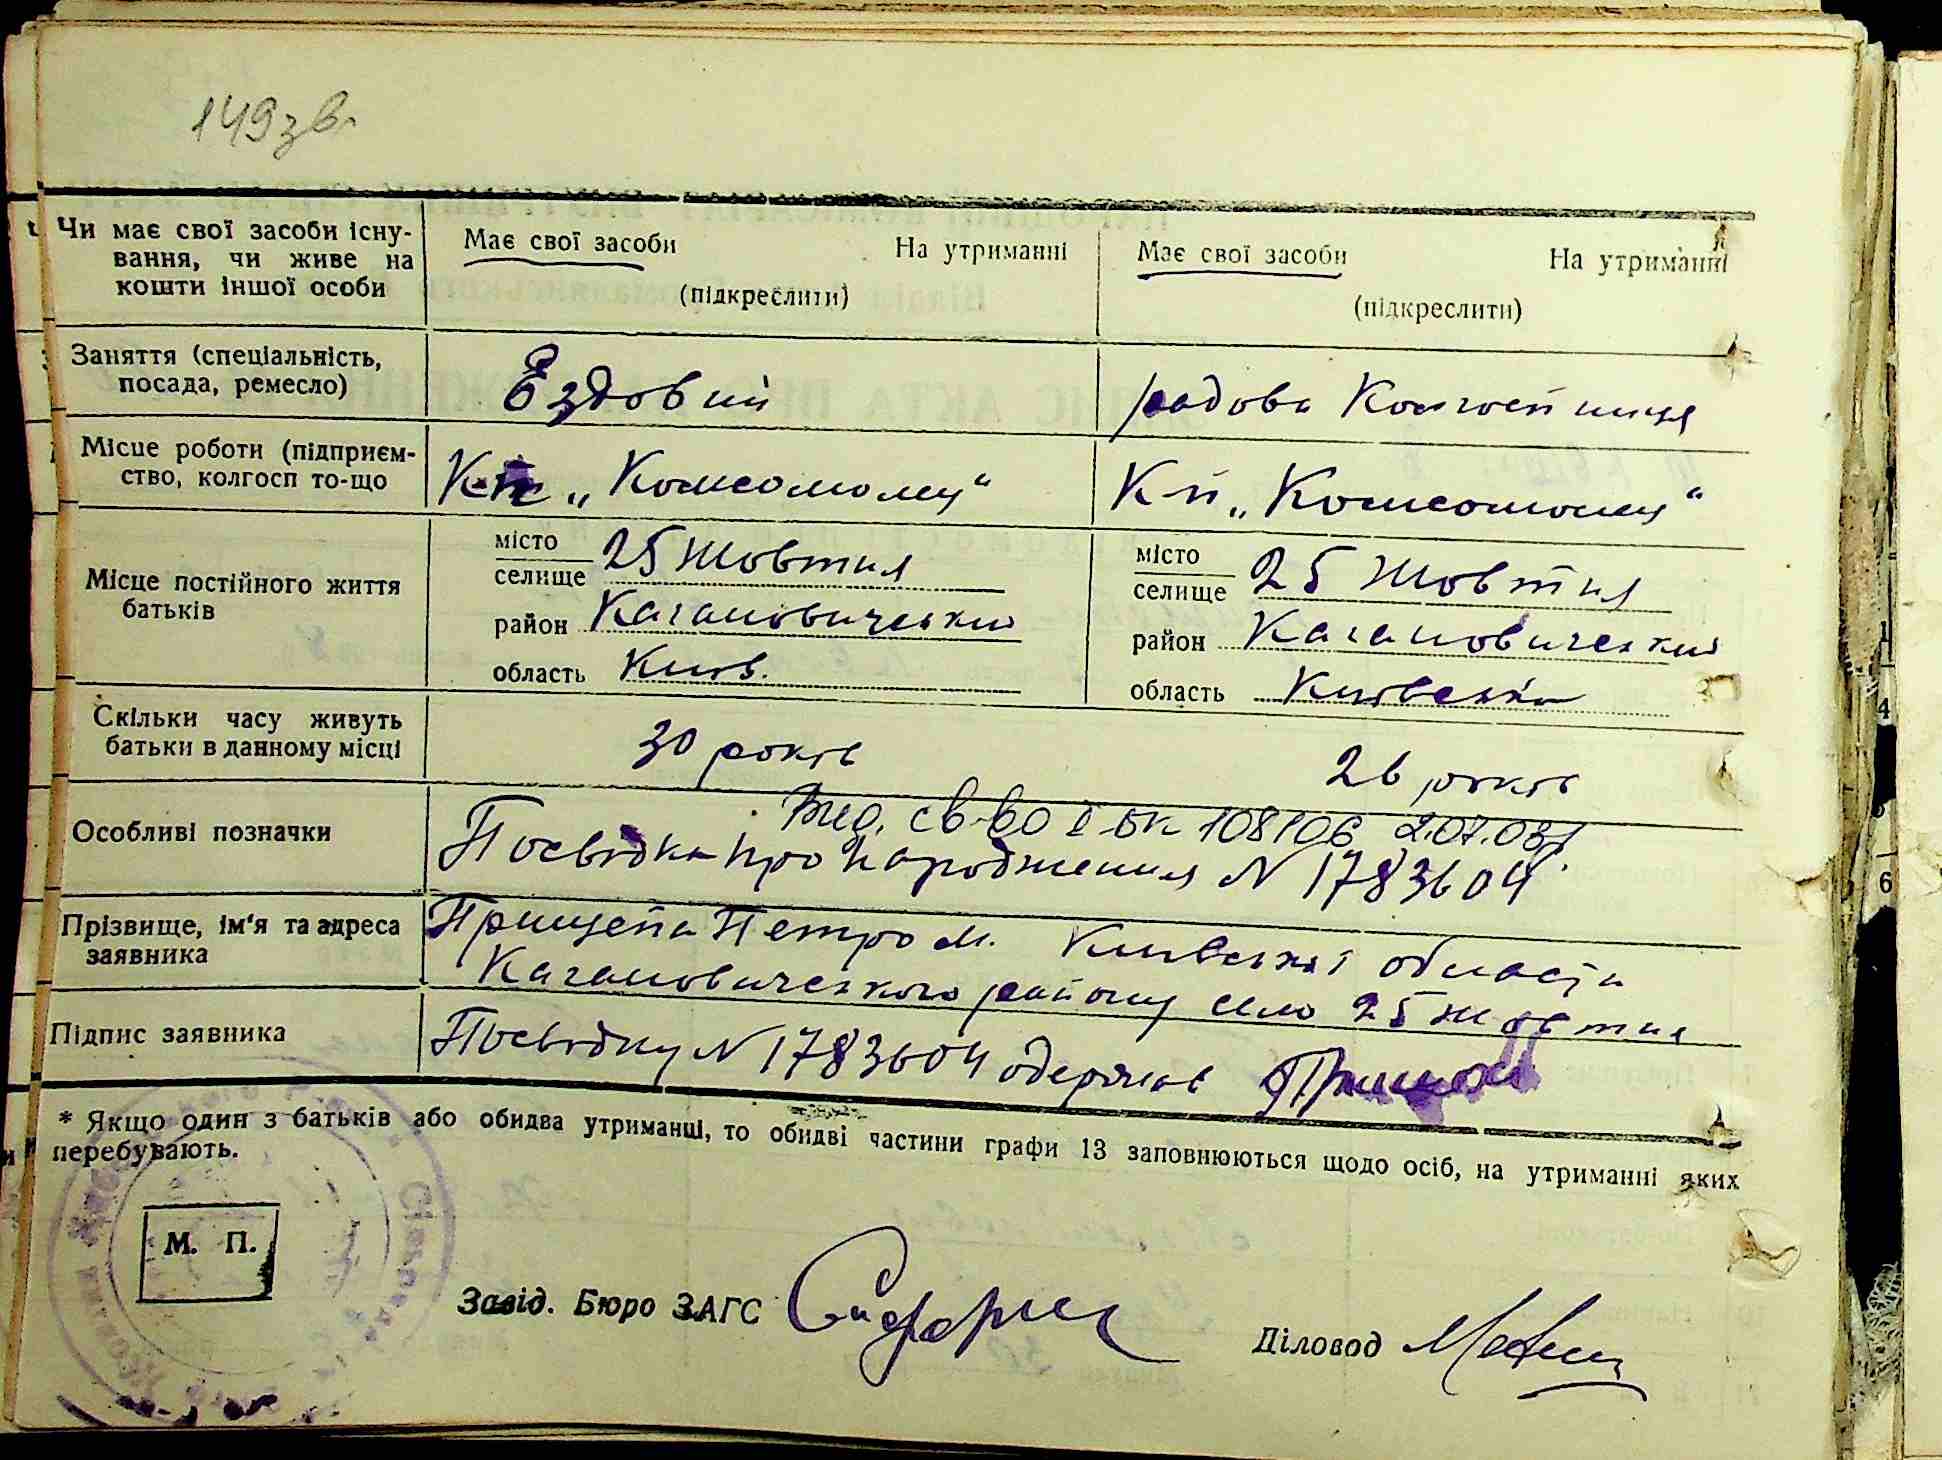 149зв.
Чи має свої засоби існу-
вання, чи живе на
кошти іншої особи
Має свої засоби На утриманні
(підкреслити)
Має свої засоби На утриманні
(підкреслити)
Заняття (спеціальність,
посада, ремесло)
Ездовий
радова Колгоспниця
Місце роботи (підприєм-
ство, колгосп то-що
"Комсомолец"
Кп "Комсомолец"
Місце постійного життя
батьків
місто
селище 25 Жовтня
район Кагановический
область Киів.
місто
селище 25 Жовтня
район Кагановический
область Киівська
Скільки часу живуть
батьки в данному місці
30 років
26 років
Особливі позначки
св-во 108106 2.07.03
Посвідка про народження N 1783604
Прізвище, ім'я та адреса
заявника
Прищепа Петро М. Киівської області
Кагановического району село 25 Жовтня
Підпис заявника
Посвідку N 1783604 одержав
* Якщо один з батьків або обидва утриманці, то обидві частини графи 13 заповнюються щодо осіб, на утриманні яких
перебувають.
М. П.
Завід. Бюро ЗАГС
Діловод